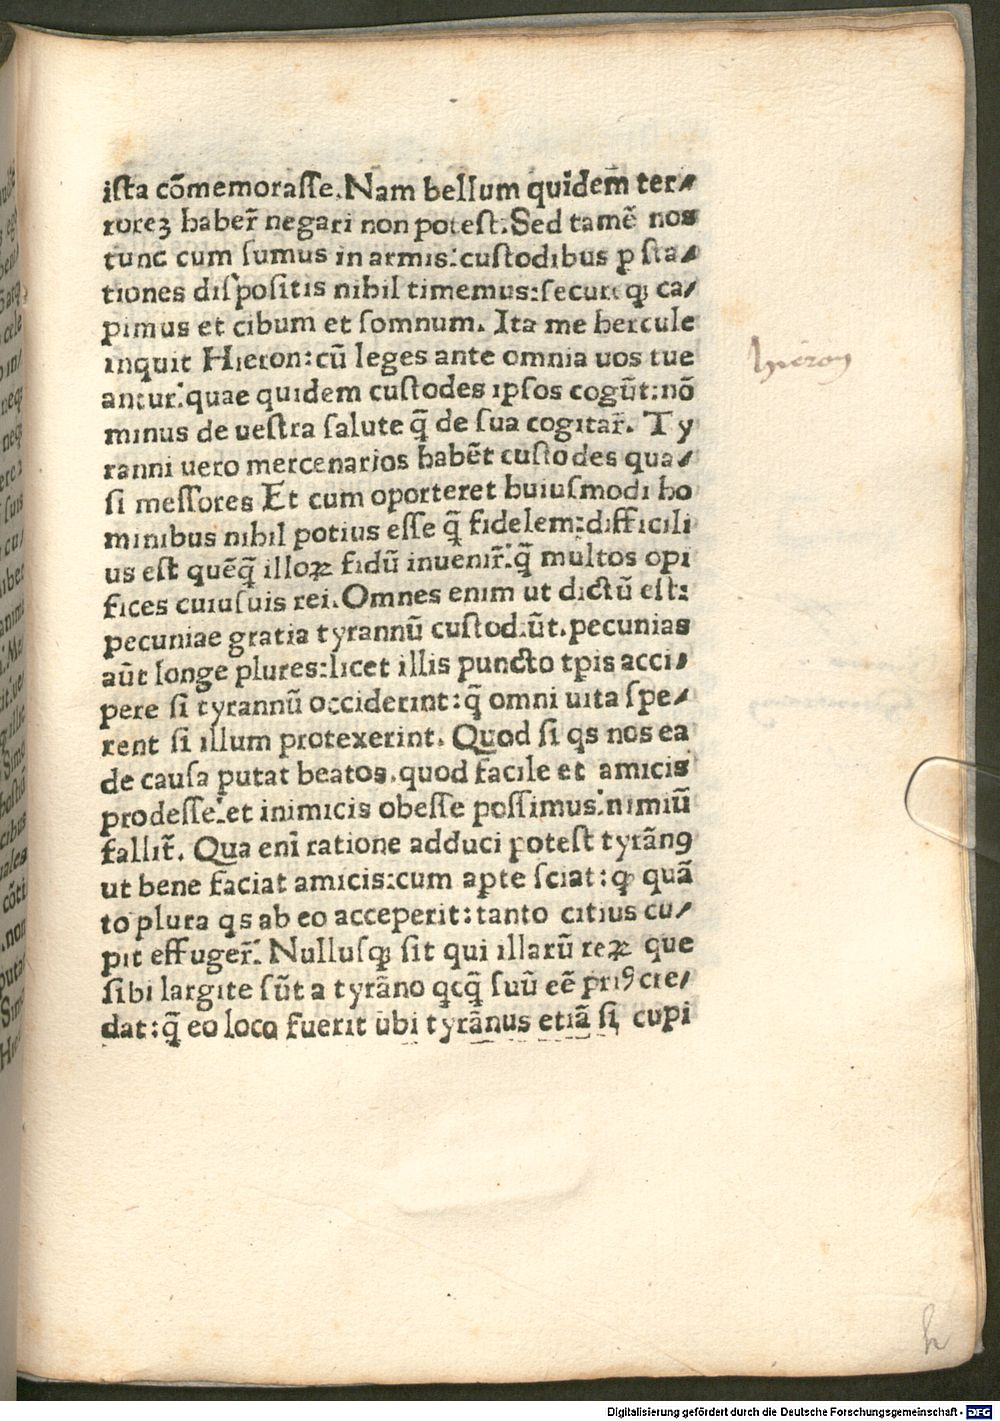 ista cõmemorasse. Nam bellum quidem ter/
roreꝫ haber̃ negari non potest. Sed tamẽ nos
tunc cum sumus in armis: custodibus p sta/
tiones dispositis nihil timemus: securi qꝫ ca/
pimus et cibum et somnum. Ita me hercule
inquit Hieron: cũ leges ante omnia uos tue
antur: quae quidem custodes ipsos cogũt: nõ
minus de uestra salute q̃ de sua cogitar̃. Ty
ranni uero mercenarios habẽt custodes qua/
si messores Et cum oporteret huiusmodi ho
minibus nihil potius esse q̃ fidelem: difficili
us est quẽq̃ illoꝝ fidũ inuenir̃: q̃ multos opi
fices cuiusuis rei. Omnes enim ut dictũ est:
pecuniae gratia tyrannũ custodiũt. pecunias
aũt longe plures: licet illis puncto tp̃is acci/
pere si tyrannũ occiderint: q̃ omni uita spe/
rent si illum protexerint. Quod si qs nos ea
de causa putat beatos. quod facile et amicis
prodesse: et inimicis obesse possimus: nimiũ
fallit̃. Qua enĩ ratione adduci potest tyrãnꝰ
ut bene faciat amicis: cum apte sciat: qꝫ quã
to plura qs ab eo acceperit: tanto citius cu/
pit effuger̃. Nullusqꝫ sit qui illarũ reꝝ que
sibi largite sũt a tyrãno qcq̃ suũ eẽ priꝰ cre/
dat: q̃ eo loco fuerit ubi tyrãnus etiã si cupi
hieron
h
Digitalisierung gefördert durch die Deutsche Forschungsgemeinschaft - DFG